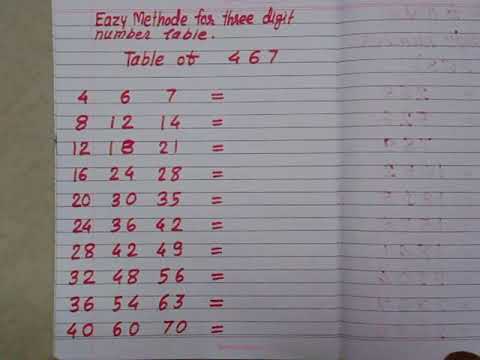 Eazy Methode for three digit
number Table.
Table of 467
4 6 7 =
8 12 14 =
12 18 21 =
16 24 28 =
20 30 35 =
24 36 42 =
28 42 49 =
32 48 56 =
36 54 63 =
40 60 70 =